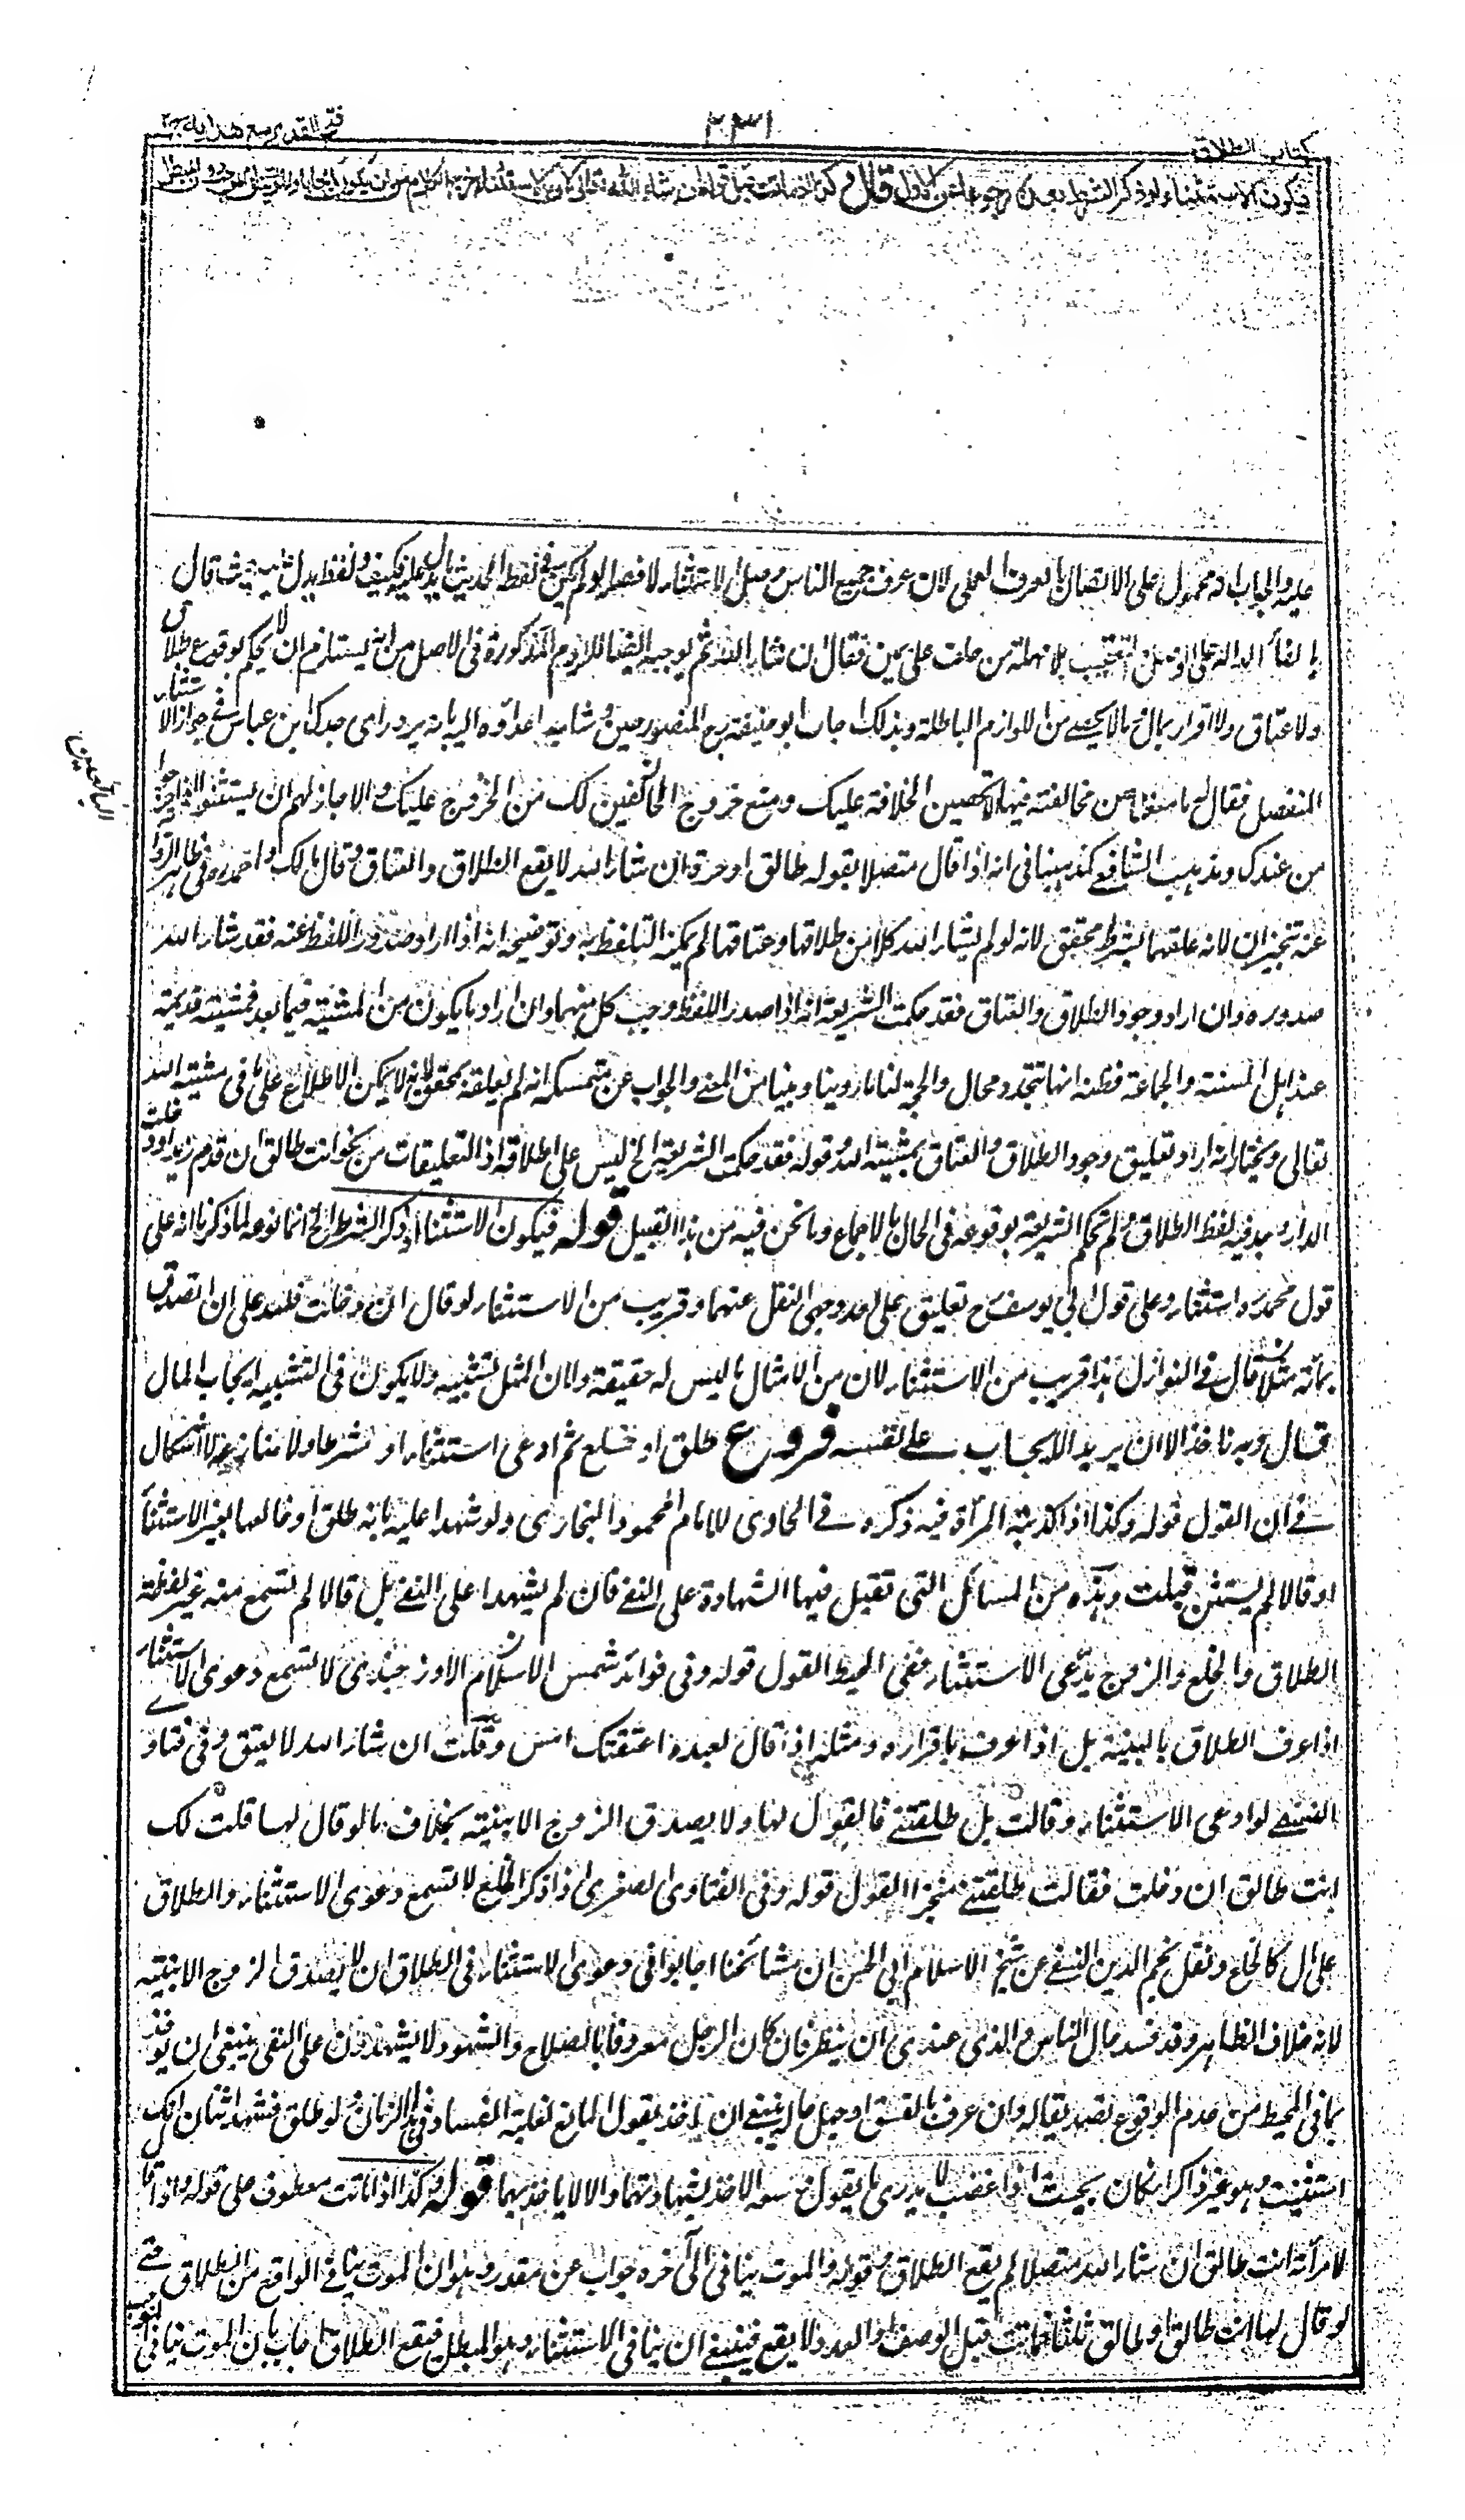 كتاب الطلاق
٢٣١
فتح القدير مع هدايه ج٢
فيكون الاستثناء او ذكر الشرط بعده رجوعا عن الاول قال وكذا اذا ماتت قبل قوله ان شاء الله تعالى لان بالاستثناء خرج الكلام من ان يكون ايجابا والموت ينافى الموجب دون المبطل
عليه والجواب انه محمول على الاتصال بالعرف العملى لان عرف جميع الناس وصل الاستثناء لا فصله ولو لم يكن فى لفظ الحديث ما يدل عليه فكيف ولفظه يدل حيث قال
بالفاء الدالة على الوصل والتعقيب بلا مهلة من حلف على يمين فقال ان شاء الله ثم يوجبه ايضا اللازم المذكورة فى الاصل من انه يستلزم ان لا يحكم بوقوع طلاق
ولا عتاق ولا اقرار بمال مما لا يحصى من اللوازم الباطلة وبذلك اجاب ابو حنيفة رح المنصور حين وشى به اعداؤه اليه بانه يرد رأى جدك ابن عباس فى جواز الاستثناء
المنفصل فقال له من مخالفته فيها تحصين الخلافة عليك ومنع خروج الحالفين لك من الخروج عليك والا جاز لهم ان يستثنوا اذا خرجوا
من عندك ومذهب الشافعى كمذهبنا فى انه اذا قال متصلا بقوله طالق او حرة ان شاء الله لا يقع الطلاق والعتاق وقال مالك واحمد رح فى ظاهر الرواية
عنه تنجيزان لانه علقهما بشرط محقق لانه لو لم يشاء الله كلا من طلاقها وعتاقها لم يمكنه التلفظ به وتوضيحه انه اذا اراد صدور اللفظ عنه فقد شاء الله
صدوره وان اراد وجود الطلاق والعتاق فقد حكمت الشريعة انه اذا صدر اللفظ وجب كل منهما وان اراد ما يكون من المشيئة فيما بعد فمشيئته قديمة
عند اهل السنة والجماعة فظنه انها تتجدد محال والحجة لنا ما روينا وبينا من المعنى والجواب عن متمسكه انه لم يعلقه بمحقق لانه لا يمكن الاطلاع على ما فى مشيئة الله
تعالى ويختار انه اراد تعليق وجود الطلاق والعتاق بمشيئة الله وقوله فقد حكمت الشريعة الخ ليس على اطلاقه اذ التعليقات من نحو انت طالق ان قدم زيد او دخلت
الدار وجد فيه لفظ الطلاق ولم تحكم الشريعة بوقوعه فى الحال بالاجماع وما نحن فيه من هذا القبيل قوله فيكون الاستثناء او ذكر الشرط الخ انما نوعه لما ذكرنا انه على
قول محمد رح استثناء وعلى قول ابى يوسف رح تعليق على احد وجهى النقل عنهما وقريب من الاستثناء لو قال ان دخلت فلله على ان اتصدق
بمائة مثلا قال فى النوازل هذا قريب من الاستثناء لان من الامثال ما ليس له حقيقة ولان المثل تشبيه ولا يكون فى التشبيه ايجاب المال
قال وبه ناخذ الا ان يريد الايجاب على نفسه فروع طلق او خلع ثم ادعى استثناء او شرطا ولا منازع لا اشكال
فى ان القول قوله وكذا اذا كذبته المرأة فيه ذكره فى الحاوى للامام المحمود البخارى ولو شهدا عليه بانه طلق او خالعها بغير الاستثناء
او قالا لم يستثن قبلت وهذه من المسائل التى تقبل فيها الشهادة على النفى فان لم يشهدا على النفى بل قالا لم نسمع منه غير لفظة
الطلاق والخلع والزوج يدعى الاستثناء ففى المحيط القول قوله وفى فوائد شمس الاسلام الاوزجندى لا تسمع دعوى الاستثناء
اذا عرف الطلاق بالبينة بل اذا عرف باقراره ومثله اذا قال لعبده اعتقتك امس وقلت ان شاء الله لا يعتق وفى فتاوى
النسفى لو ادعى الاستثناء وقالت بل طلقتنى فالقول لها ولا يصدق الزوج الا ببينة بخلاف ما لو قال لها قلت لك
انت طالق ان دخلت فقالت طلقتنى منجزا القول قوله وفى الفتاوى الصغرى اذا ذكر الخلع لا تسمع دعوى الاستثناء والطلاق
على مال كالخلع ونقل نجم الدين النسفى عن شيخ الاسلام ابى الحسن ان مشائخنا اجابوا فى دعوى الاستثناء فى الطلاق ان لا يصدق الزوج الا ببينة
لانه خلاف الظاهر وقد فسد حال الناس والذى عندى ان ينظر فان كان الرجل معروفا بالصلاح والشهود لا يشهدون على النفى ينبغى ان يؤخذ
بما فى المحيط من عدم الوقوع تصديقا له وان عرف بالفسق او جهل حاله ينبغى ان يؤخذ بقول المانع لغلبة الفساد فى هذا الزمان ولو طلق فشهد اثنان انك
استثنيت وهو غير ذاكر ان كان بحيث اذا غضب لا يدرى ما يقول وسعه الاخذ بشهادتهما والا لا ياخذ بهما قوله وكذا اذا ماتت معطوف على قوله واذا قال
لامرأته انت طالق ان شاء الله متصلا لم يقع الطلاق وقوله والموت ينافى الى آخره جواب عن مقدر وهو ان الموت ينافى الواقع من الطلاق حتى
لو قال لها انت طالق او طالق ثلثا فماتت قبل الوصف والعدد لا يقع فينبغى ان ينافى الاستثناء وهو المبطل فيقع الطلاق اجاب بان الموت ينافى الموجب